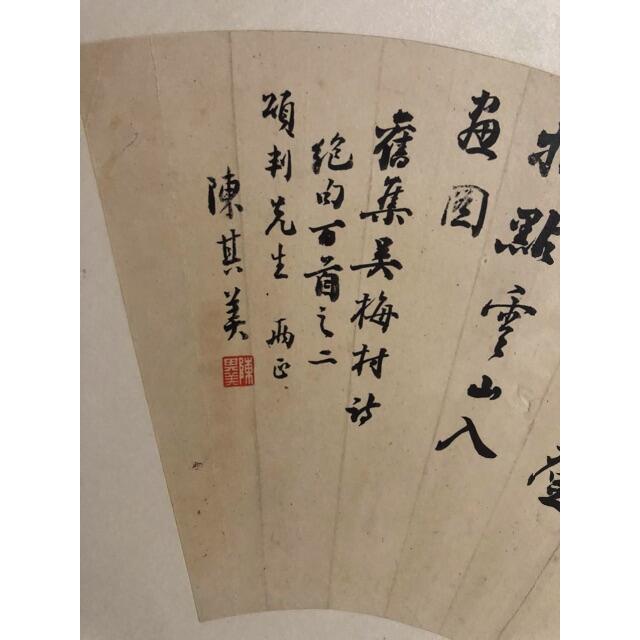 指點雲山入
畫圖
舊集吳梅村詩
絕句百首之二
頌判先生 兩正
陳其美
陳其美